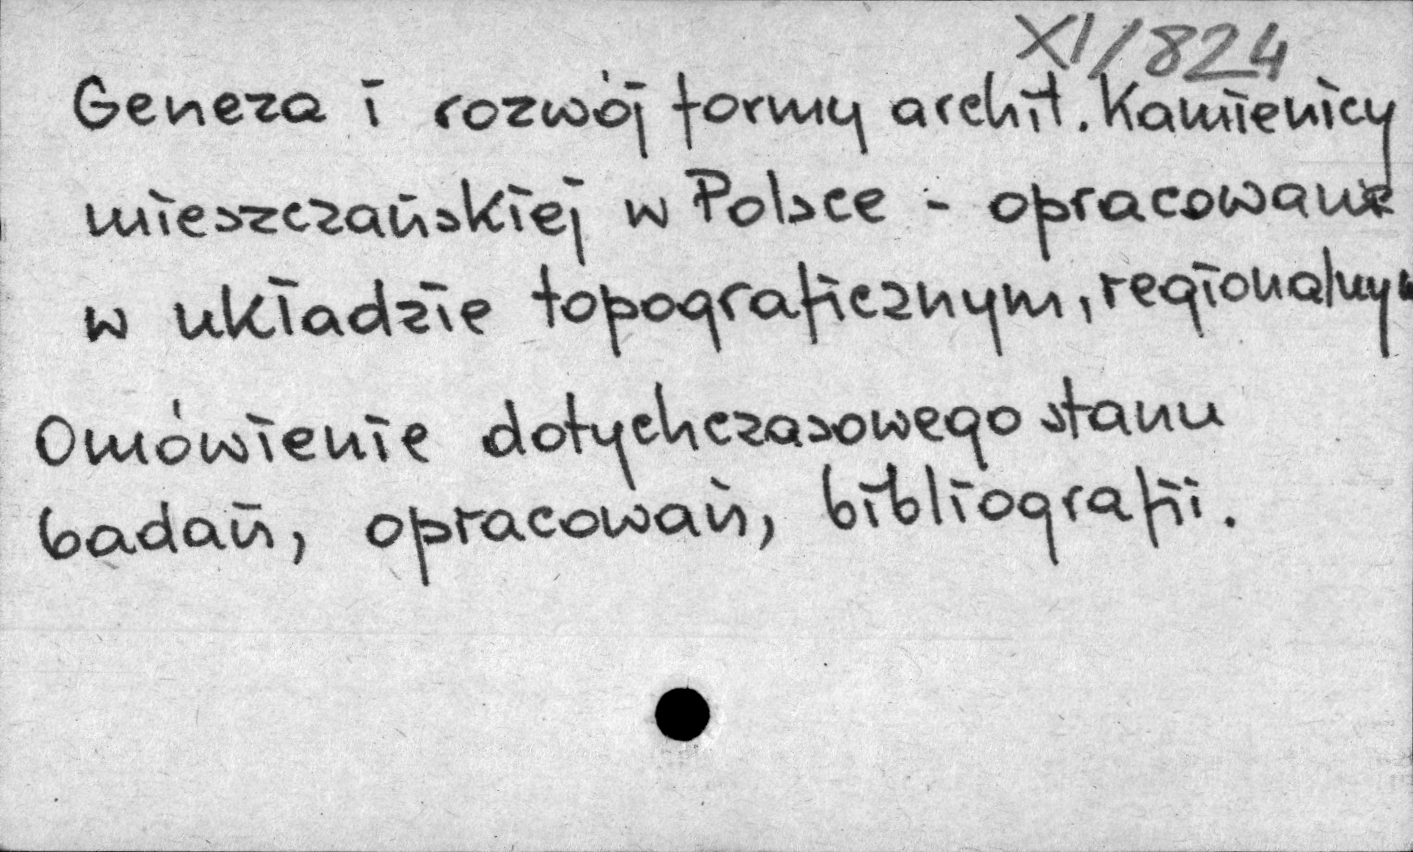 XI/824
Geneza i rozwój formy archit. Kamienicy
mieszczańskiej w Polsce - opracowane
w układzie topograficznym, regionalnym
Omówienie dotychczasowego stanu
badań, opracowań, bibliografii.